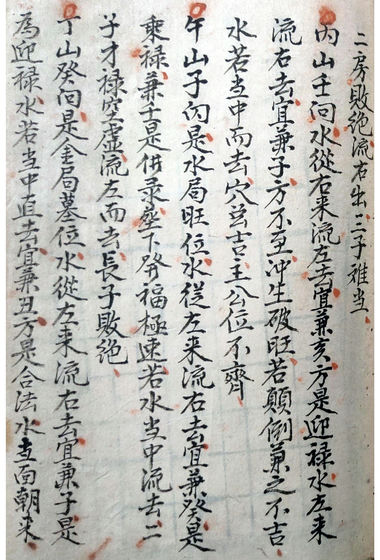 二房敗絶流右出三子难当
丙山壬向水從右来流左去宜兼亥方是迎禄水左来
流右去宜兼子方不至冲生破旺若顛倒兼之不吉
水若当中而去穴吉主公位不齊
午山子向是水局旺位水從左来流右去宜兼癸是
乘禄兼壬是借录座下発福極速若水当中流去二
子才禄空虚流左而去長子敗絶
丁山癸向是金局墓位水從左来流右去宜兼子是
為迎禄水若当中直去宜兼丑方是合法水直面朝来